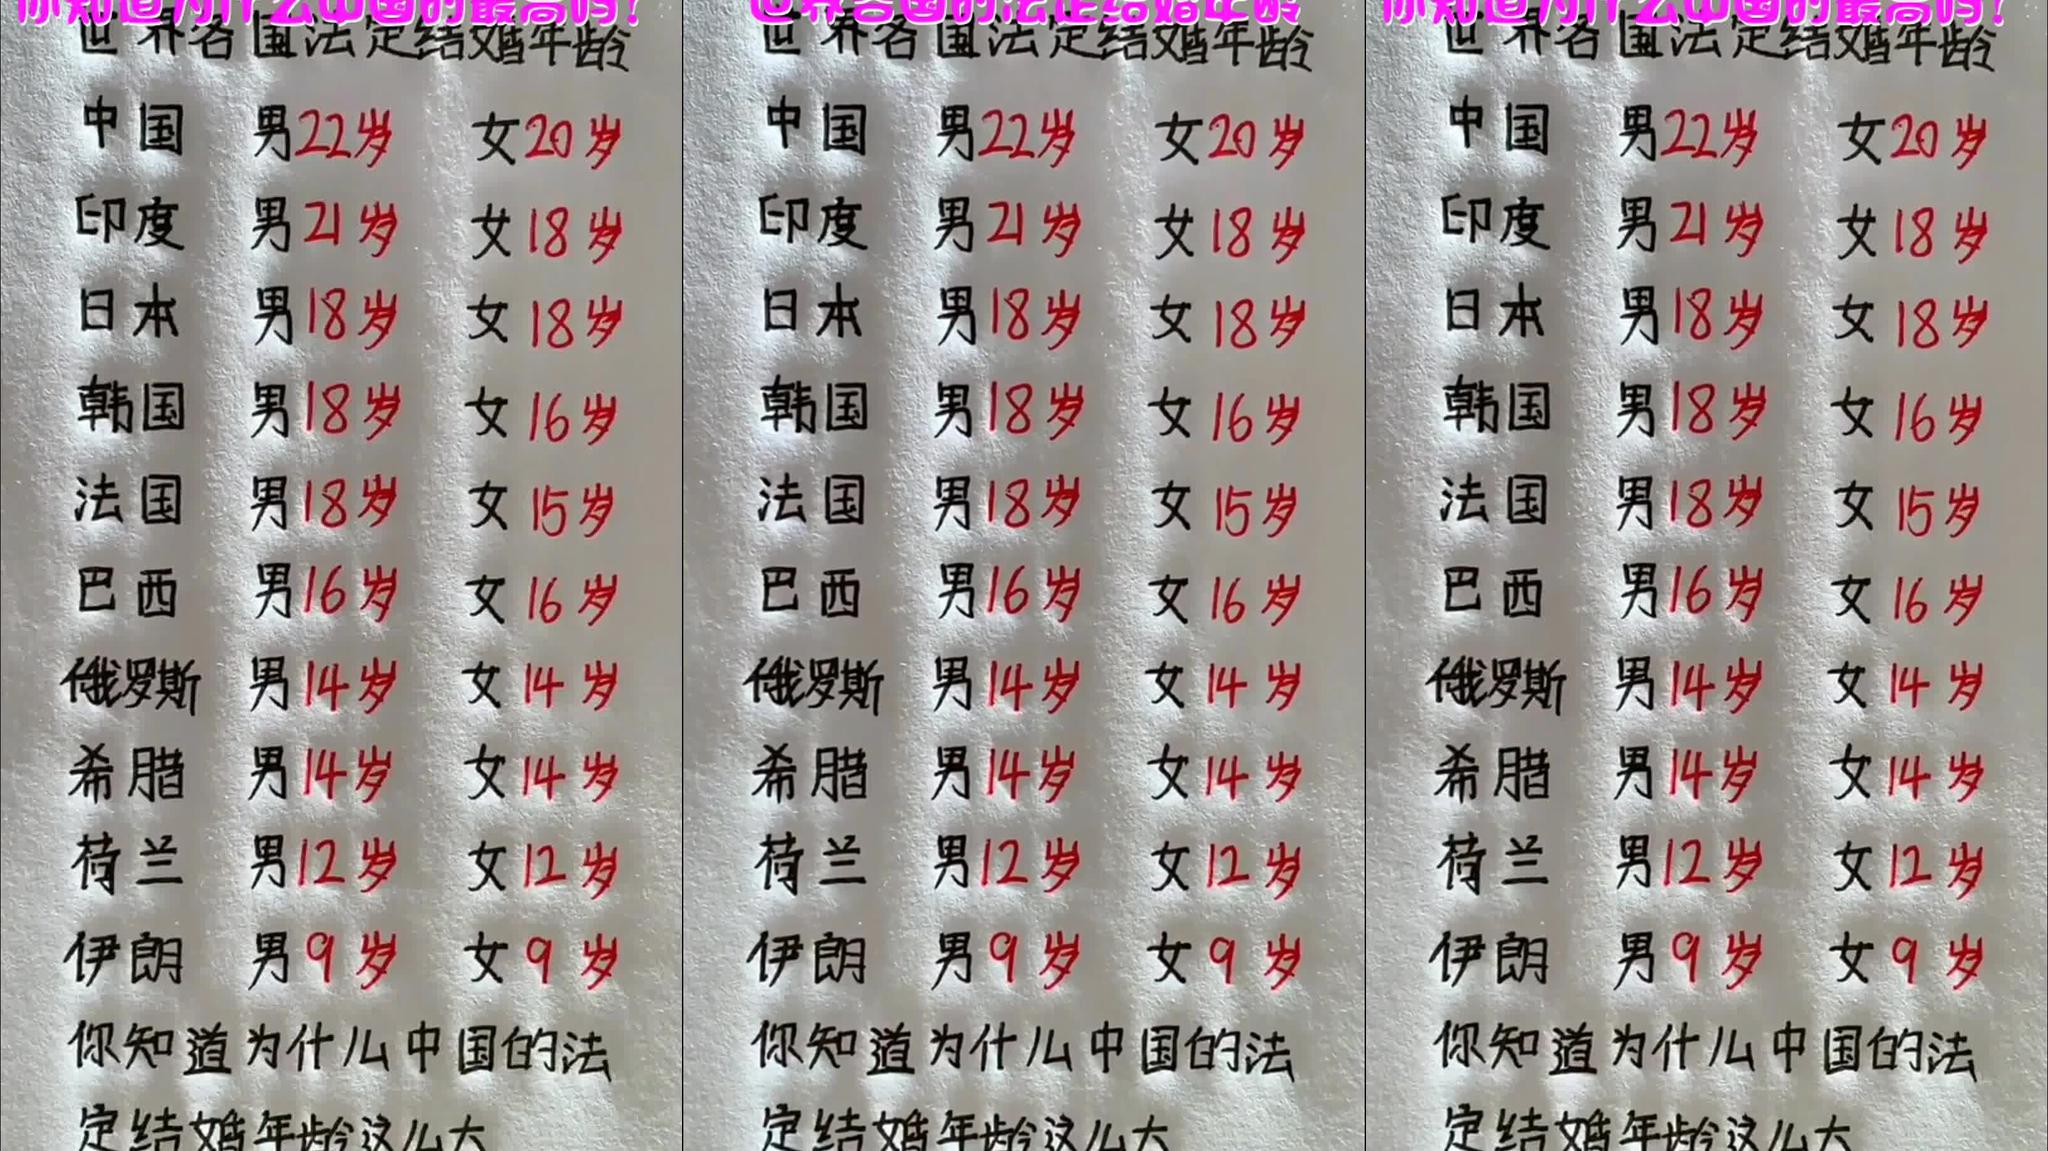 你知道为什么中国的最高吗？
世界各国法定结婚年龄
中国 男22岁 女20岁
印度 男21岁 女18岁
日本 男18岁 女18岁
韩国 男18岁 女16岁
法国 男18岁 女15岁
巴西 男16岁 女16岁
俄罗斯 男14岁 女14岁
希腊 男14岁 女14岁
荷兰 男12岁 女12岁
伊朗 男9岁 女9岁
你知道为什么中国的法
定结婚年龄这么大
世界各国的法定结婚年龄
世界各国法定结婚年龄
中国 男22岁 女20岁
印度 男21岁 女18岁
日本 男18岁 女18岁
韩国 男18岁 女16岁
法国 男18岁 女15岁
巴西 男16岁 女16岁
俄罗斯 男14岁 女14岁
希腊 男14岁 女14岁
荷兰 男12岁 女12岁
伊朗 男9岁 女9岁
你知道为什么中国的法
定结婚年龄这么大
你知道为什么中国的最高吗？
世界各国法定结婚年龄
中国 男22岁 女20岁
印度 男21岁 女18岁
日本 男18岁 女18岁
韩国 男18岁 女16岁
法国 男18岁 女15岁
巴西 男16岁 女16岁
俄罗斯 男14岁 女14岁
希腊 男14岁 女14岁
荷兰 男12岁 女12岁
伊朗 男9岁 女9岁
你知道为什么中国的法
定结婚年龄这么大